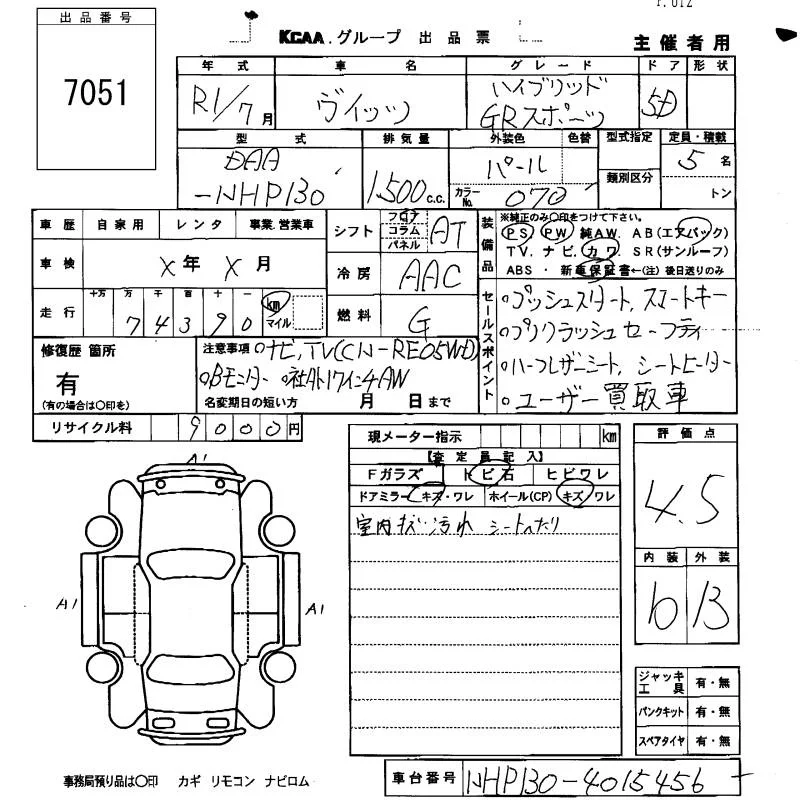 出品番号
7051
KCAA.グループ 出品票
主催者用
年式 車名 グレード ドア 形状
R1/7月 ヴィッツ ハイブリッド GRスポーツ 5D
型式 排気量 外装色 色替 型式指定 定員・積載
DAA-NHP130 1,500c.c. パール 類別区分 5名
カラーNo. 070 トン
車歴 自家用 レンタ 事業・営業車
シフト フロア コラム パネル AT
装備品 ※純正のみ〇印をつけて下さい。
PS PW 純AW. AB(エアバック)
TV. ナビ. カワ SR(サンルーフ)
ABS ・ 新車保証書←(注)後日送りのみ
車検 X年 X月
冷房 AAC
走行 十万 万 千 百 十 一
74390 km マイル
燃料 G
セールスポイント
○プッシュスタート, スマートキー
○プリクラッシュセーフティ
○ハーフレザーシート, シートヒーター
○ユーザー買取車
修復歴 箇所
有
(有の場合は〇印を)
注意事項 ○ナビ, TV(CN-RE05WD)
○Bモニター ○社外17インチAW
名変期日の短い方 月 日まで
リサイクル料 9000円
現メーター指示 km
【査定員記入】
Fガラス トビ石 ヒビワレ
ドアミラー キズ・ワレ ホイール(CP) キズ ワレ
室内キズ・汚れ シートへたり
評価点
4.5
内装 外装
B
A1
A1
A1
ジャッキ 工具 有・無
パンクキット 有・無
スペアタイヤ 有・無
事務局預り品は〇印 カギ リモコン ナビロム
車台番号 NHP130-4015456